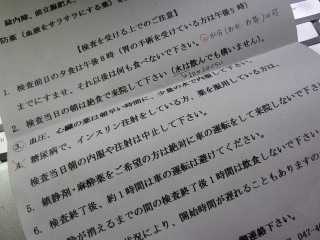 防薬（血液をサラサラにする薬）を
【検査を受ける上でのご注意】
1. 検査前日の夕食は午後8時（胃の手術を受けている方は午後5時）
までにすませ、それ以後は何も食べないで下さい。
2. 検査当日の朝は絶食で来院して下さい（水は飲んでも構いません）。
3. 血圧、心臓の薬は朝早い時間に、少量の水で内服して下さい。
4. 糖尿病で、インスリン注射をしている方、薬を服用している方は、
検査当日朝の内服や注射は中止して下さい。
5. 鎮静剤・麻酔薬をご希望の方は絶対に車の運転をして来院しないで下さい。
検査終了後、約1時間は車の運転は避けてください。
6. 検査終了後、
消えるまでの間の検査終了後1時間は飲食しないで下さい。
状況により、開始時間が遅れることもありますの
連絡下さい。
047-4